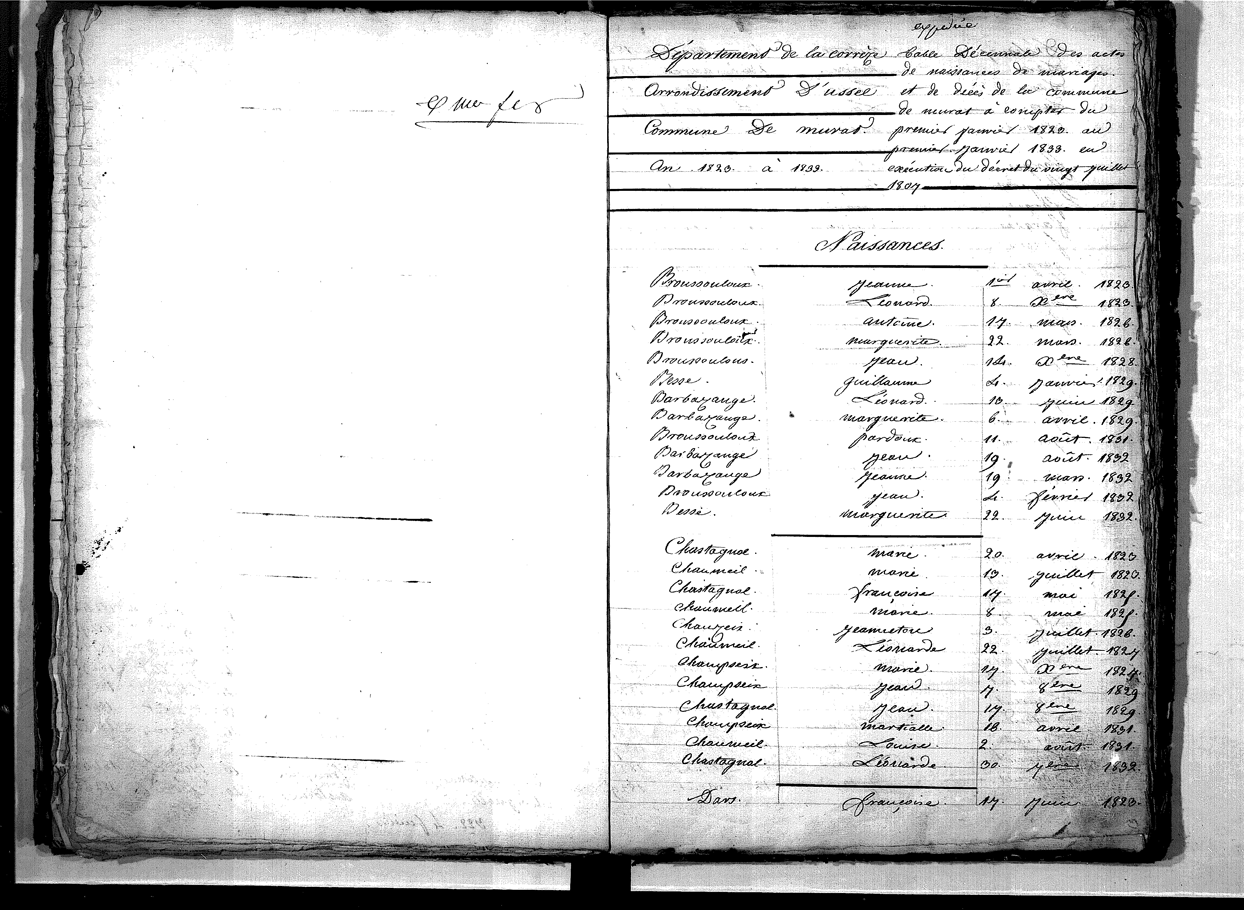 expediée
Département de la corrèze
Arrondissement D'ussel
Commune De murat
An 1823. à 1833.
table Décennale des actes
de naissances de mariages.
et de décès de la commune
de murat à compter du
premier janvier 1823. au
premier janvier 1833. en
exécution du décret du vingt juillet
1807
Naissances.
Broussouloux. jeanne. 1er avril. 1823.
Broussouloux. Léonard. 8. Xbre 1823.
Broussouloux. antoine. 17. mars. 1826.
Broussouloux. marguerite. 22. mars. 1826.
Broussoulous. jean. 14. Xbre 1828.
Besse. guillaume 4. janvier. 1829.
Barbazange. Léonard. 13. juin 1829
Barbazange. marguerite. 6. avril. 1829.
Broussouloux pardoux. 11. août. 1831.
Barbazange jean. 19. août. 1832
Barbazange jeanne. 19. mars. 1832
Broussouloux jean. 4. février 1832
Besse. marguerite. 22. juin 1832.
Chastagnol. marie. 20. avril. 1823
Chaumeil. marie. 13. juillet 1823.
Chastagnol. françoise 17. mai 1825.
Chaumeil. marie. 8. mai 1825.
Chauzeix. jeanneton 3. juillet. 1826.
Chaumeil. Léonarde 22. juillet. 1827
Champseix. marie. 17. Xbre 1827.
Champseix jean. 7. 8bre 1829
Chastagnol. jean 17. 8bre 1829.
Champseix martialle 18. avril 1831.
Chaumeil. Louise. 2. août. 1831.
Chastagnol. Léonarde 30. 7bre 1832.
Dars. françoise. 17. juin 1823.